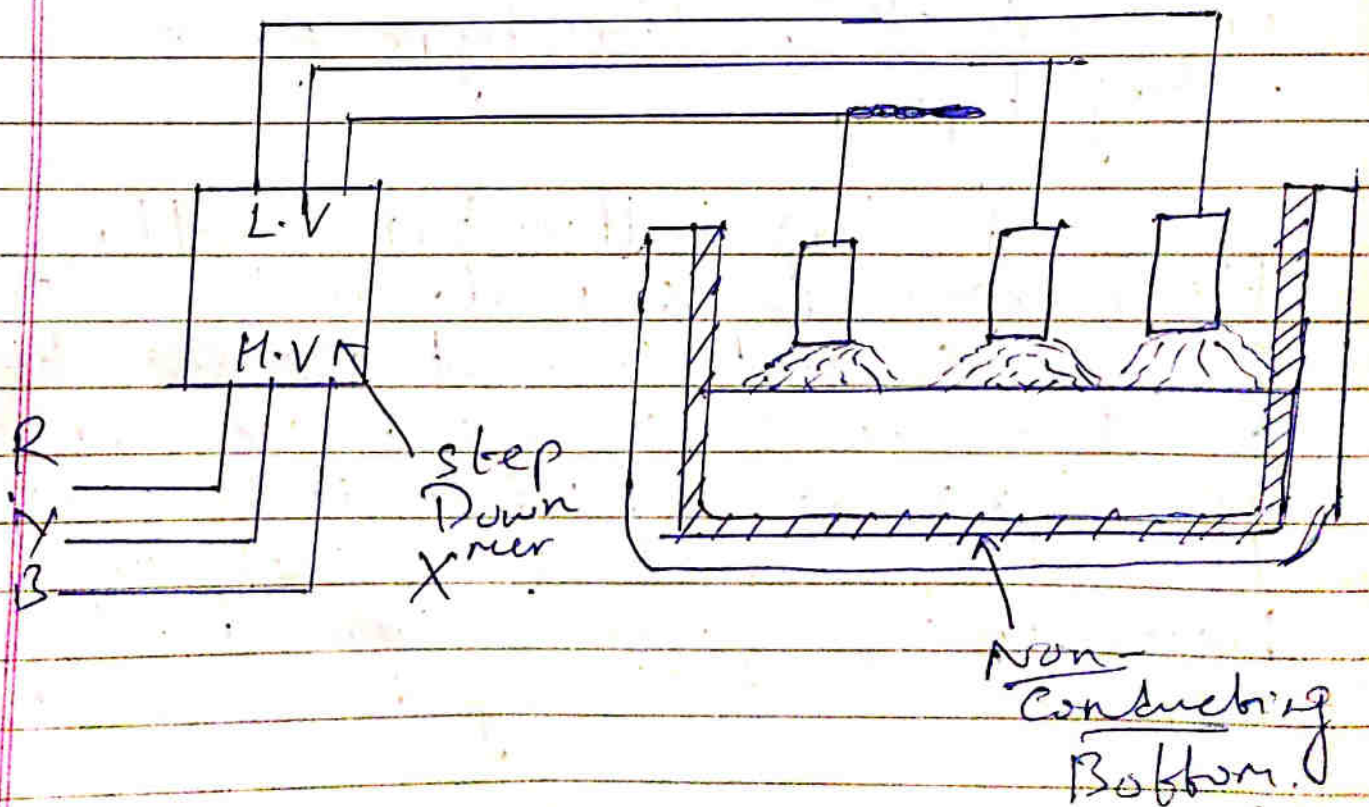 L.V
H.V
R
Y
B
step
Down
Xmer
Non-
Conducting
Bottom.